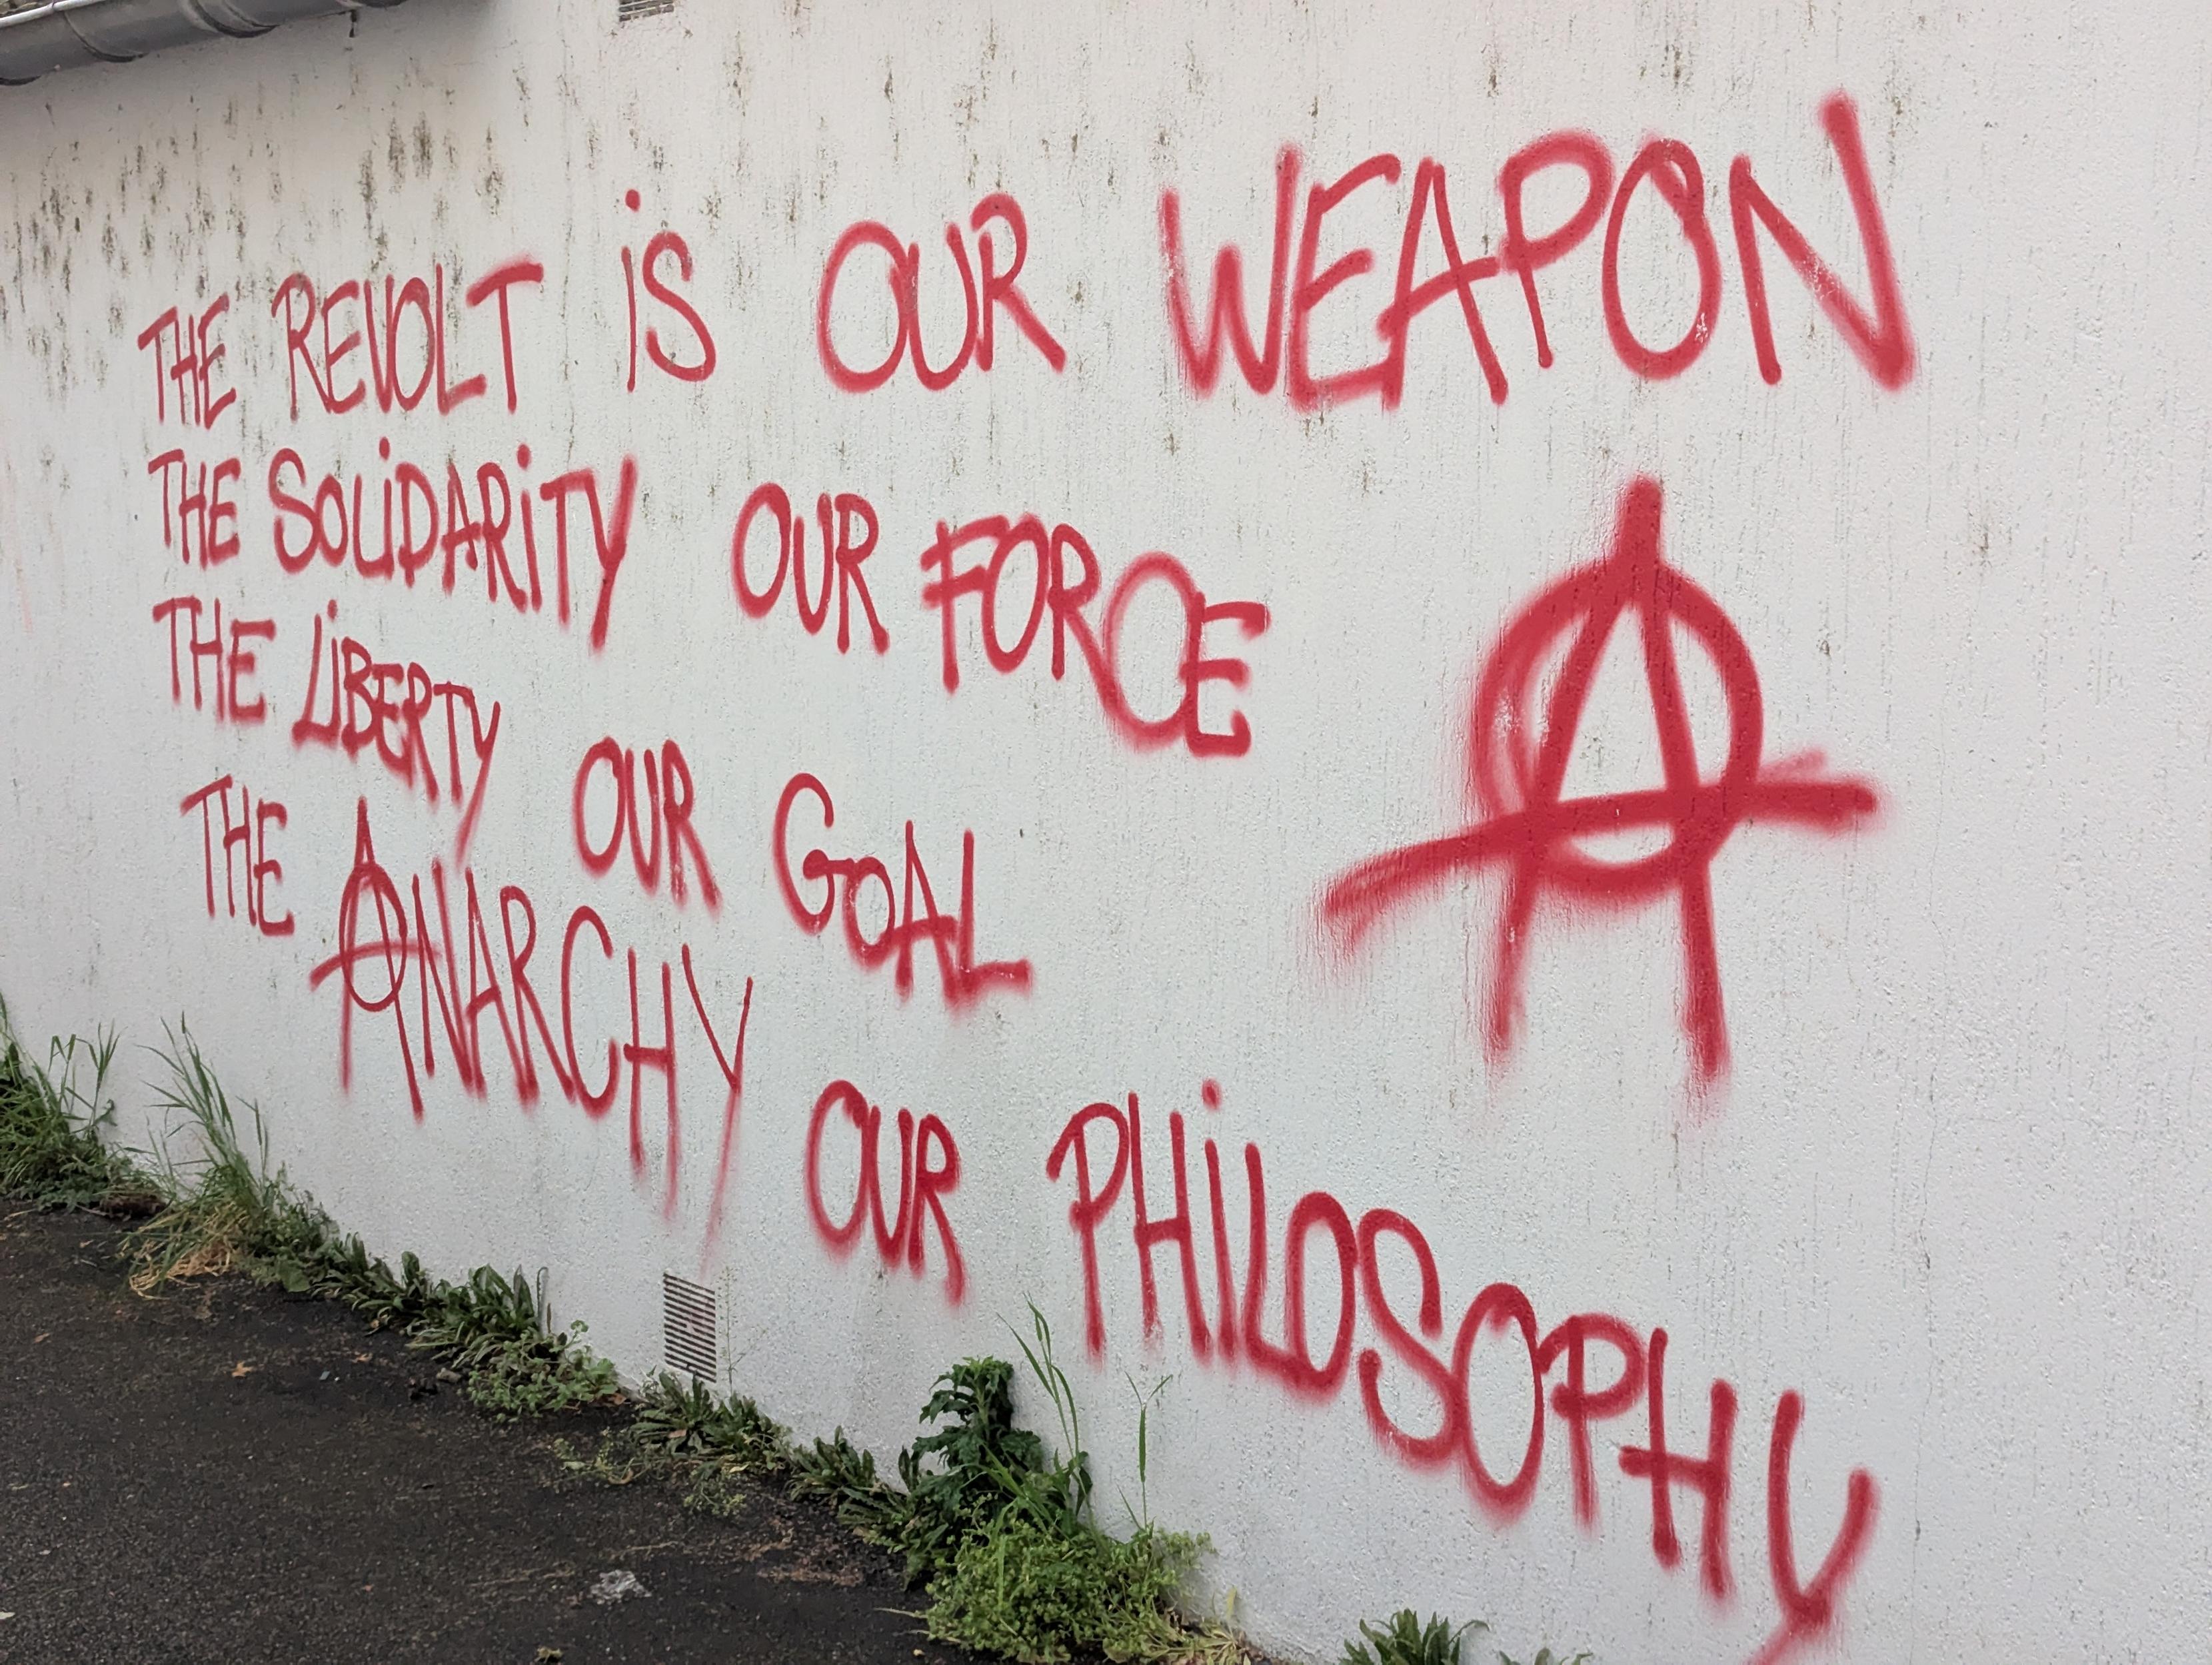 THE REVOLT iS OUR WEAPON
THE SOLiDARiTY OUR FORCE
THE LiBERTY OUR GOAL
THE ANARCHY OUR PHiLOSOPHY
A